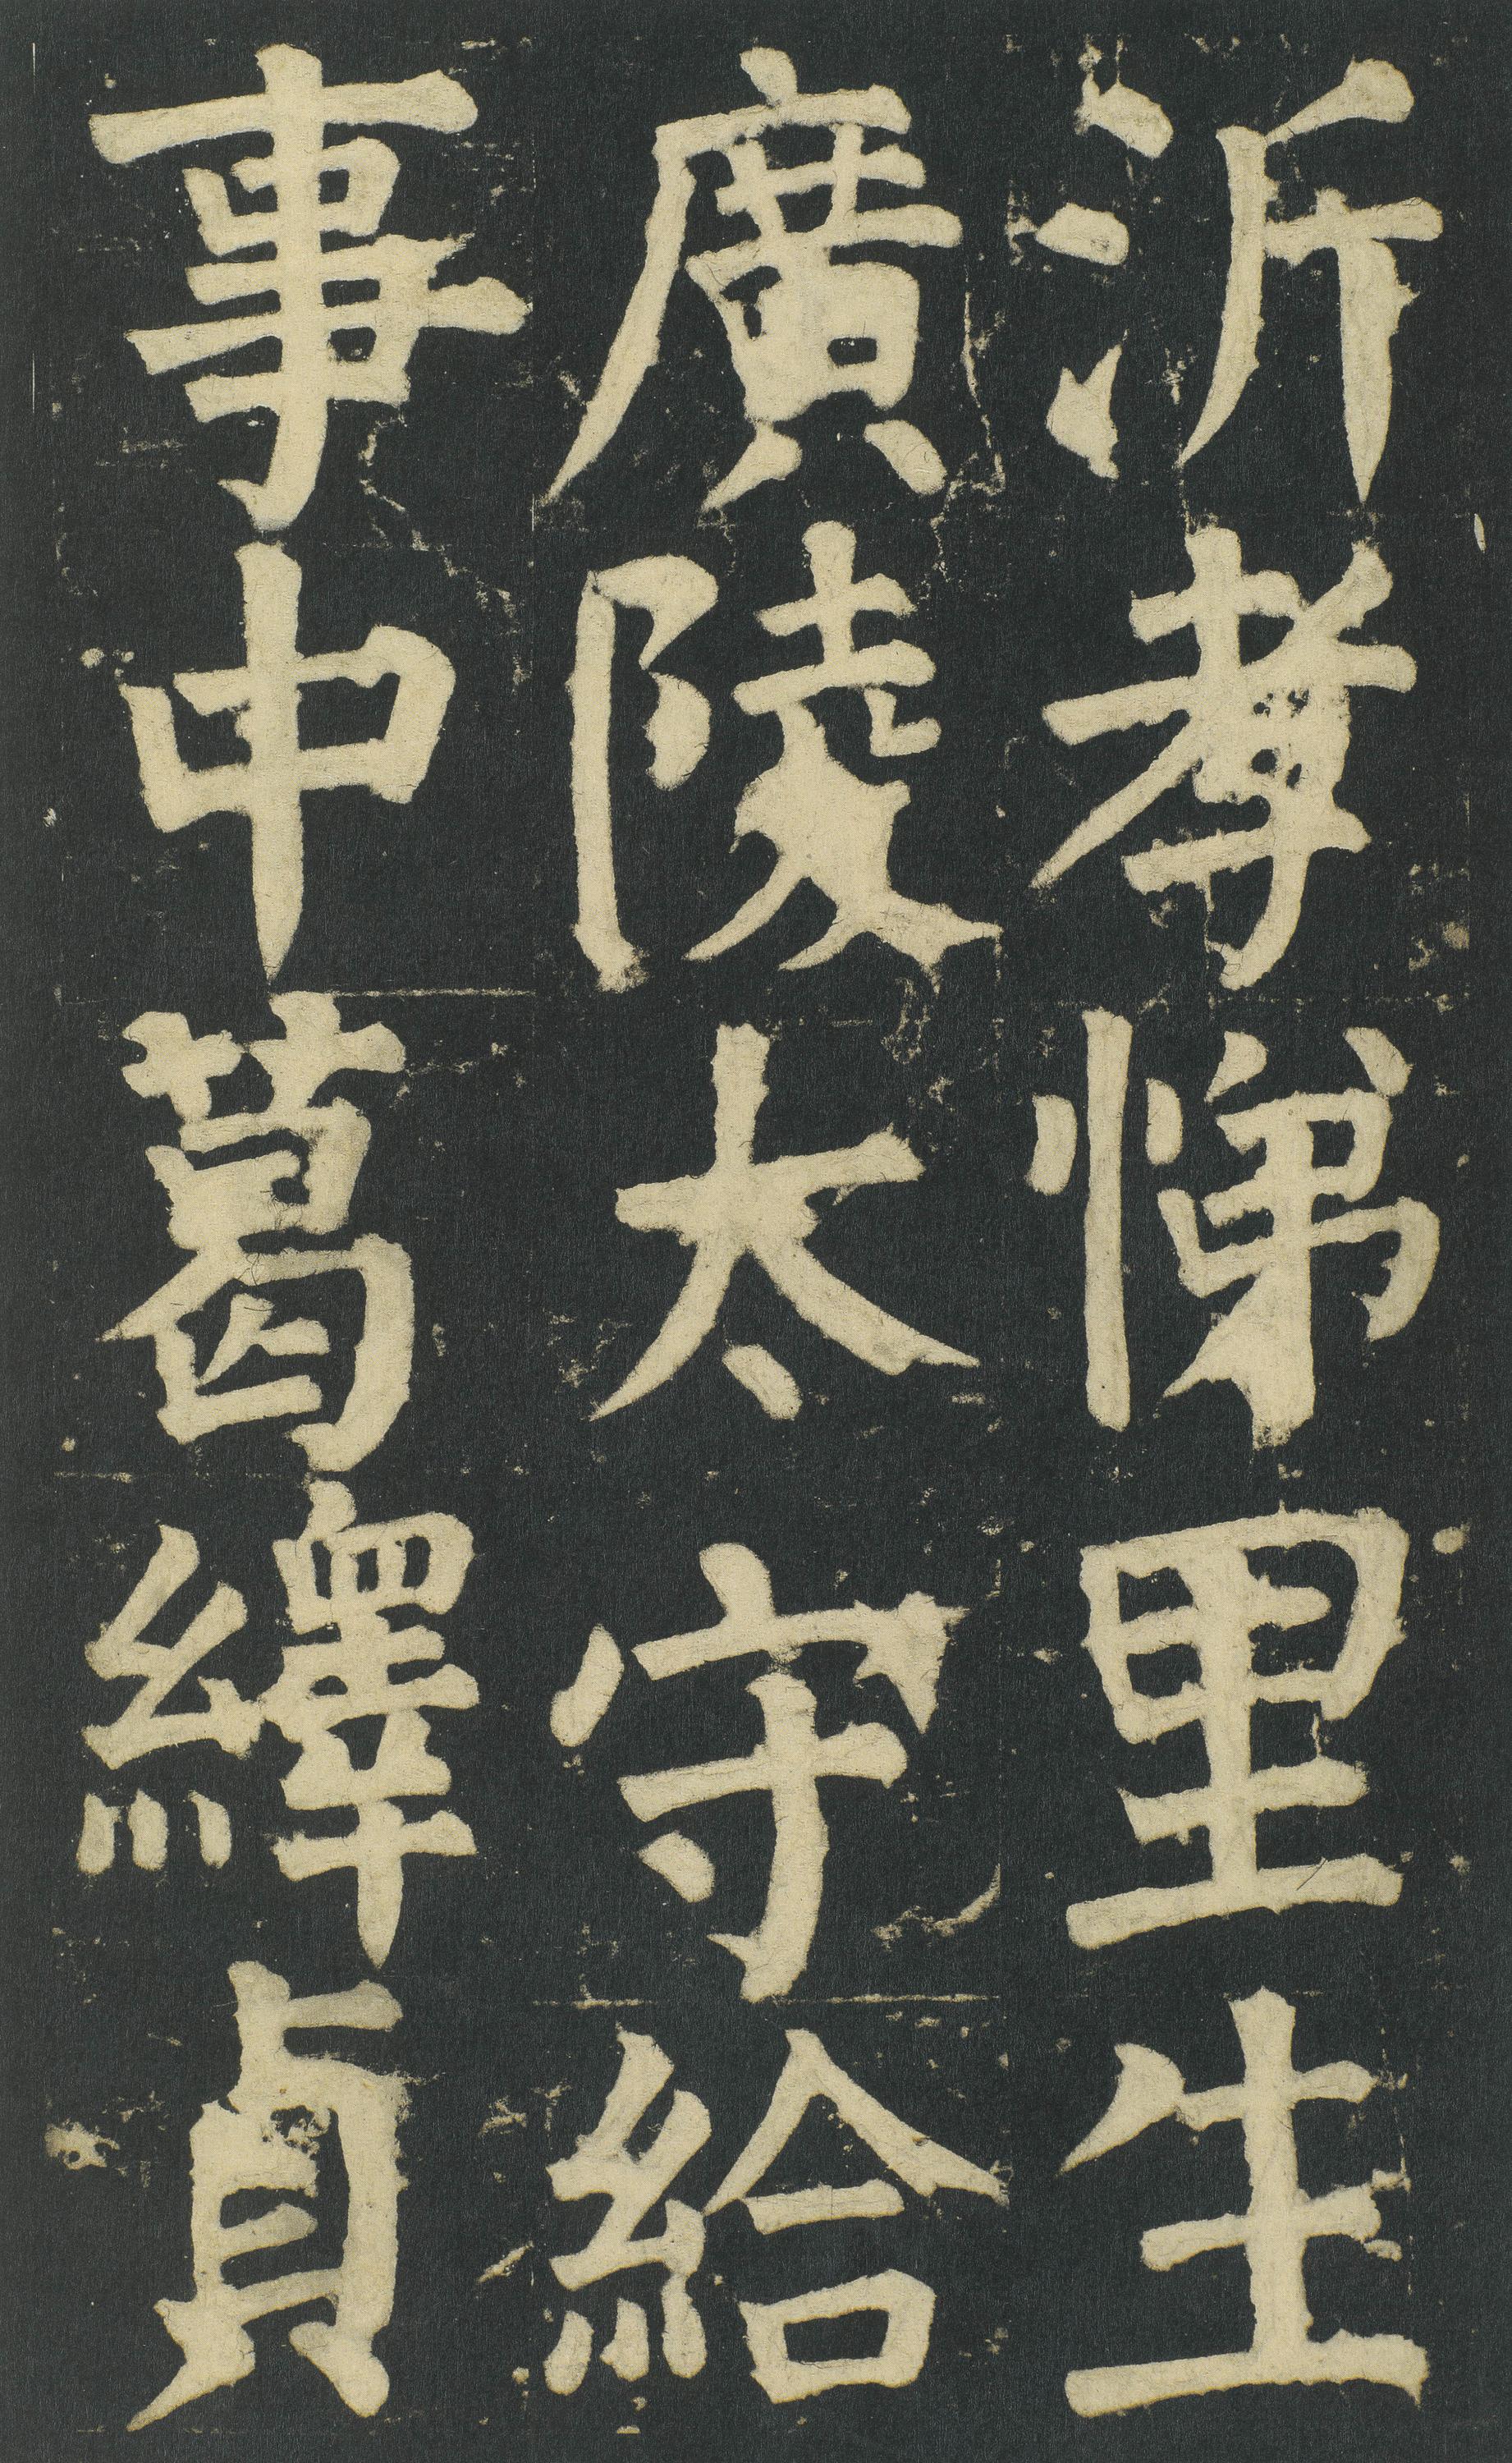 沂孝悌里生
廣陵太守給
事中葛繹貞